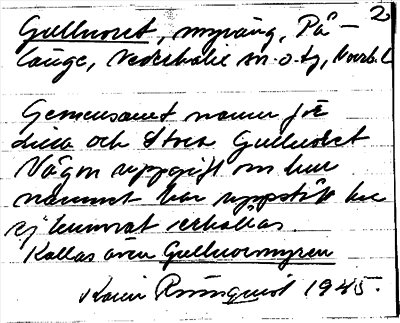 2
Gullnoret, myräng, På-
länge, Nederkalix sn o. tg, Norrb. l
Gemensamt namn för
Lilla och Stora Gullnoret
Någon uppgift om hur
namnet har uppstått har
ej kunnat erhållas.
Kallas även Gullnormyren
Karin Rönnquist 1945.